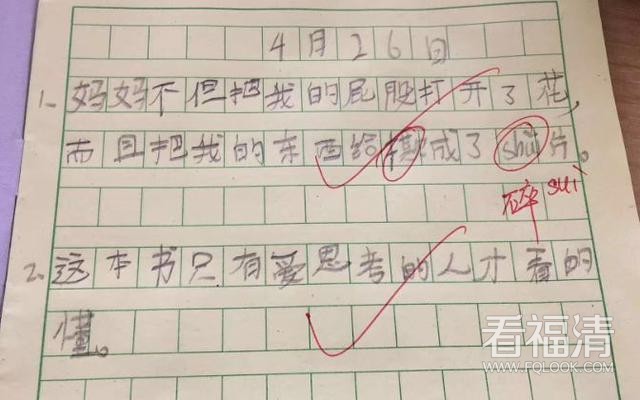 4月26日
1. 妈妈不但把我的屁股打开了花,
而且把我的东西给撕成了shui片。
碎 sui
2. 这本书只有爱思考的人才看的
懂。
看福清
WWW.FQLOOK.COM